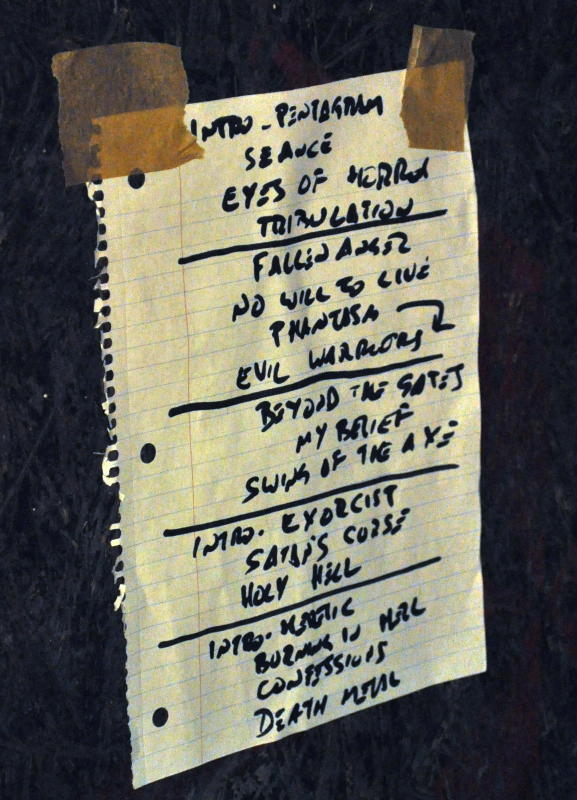 INTRO - PENTAGRAM
SEANCE
EYES OF HORROR
TRIBULATION
FALLEN ANGEL
NO WILL TO LIVE
PHANTASM
EVIL WARRIORS
BEYOND THE GATES
MY BELIEF
SWING OF THE AXE
INTRO. EXORCIST
SATAN'S CURSE
HOLY HELL
INTRO. HERETIC
BURNING IN HELL
CONFESSIONS
DEATH METAL